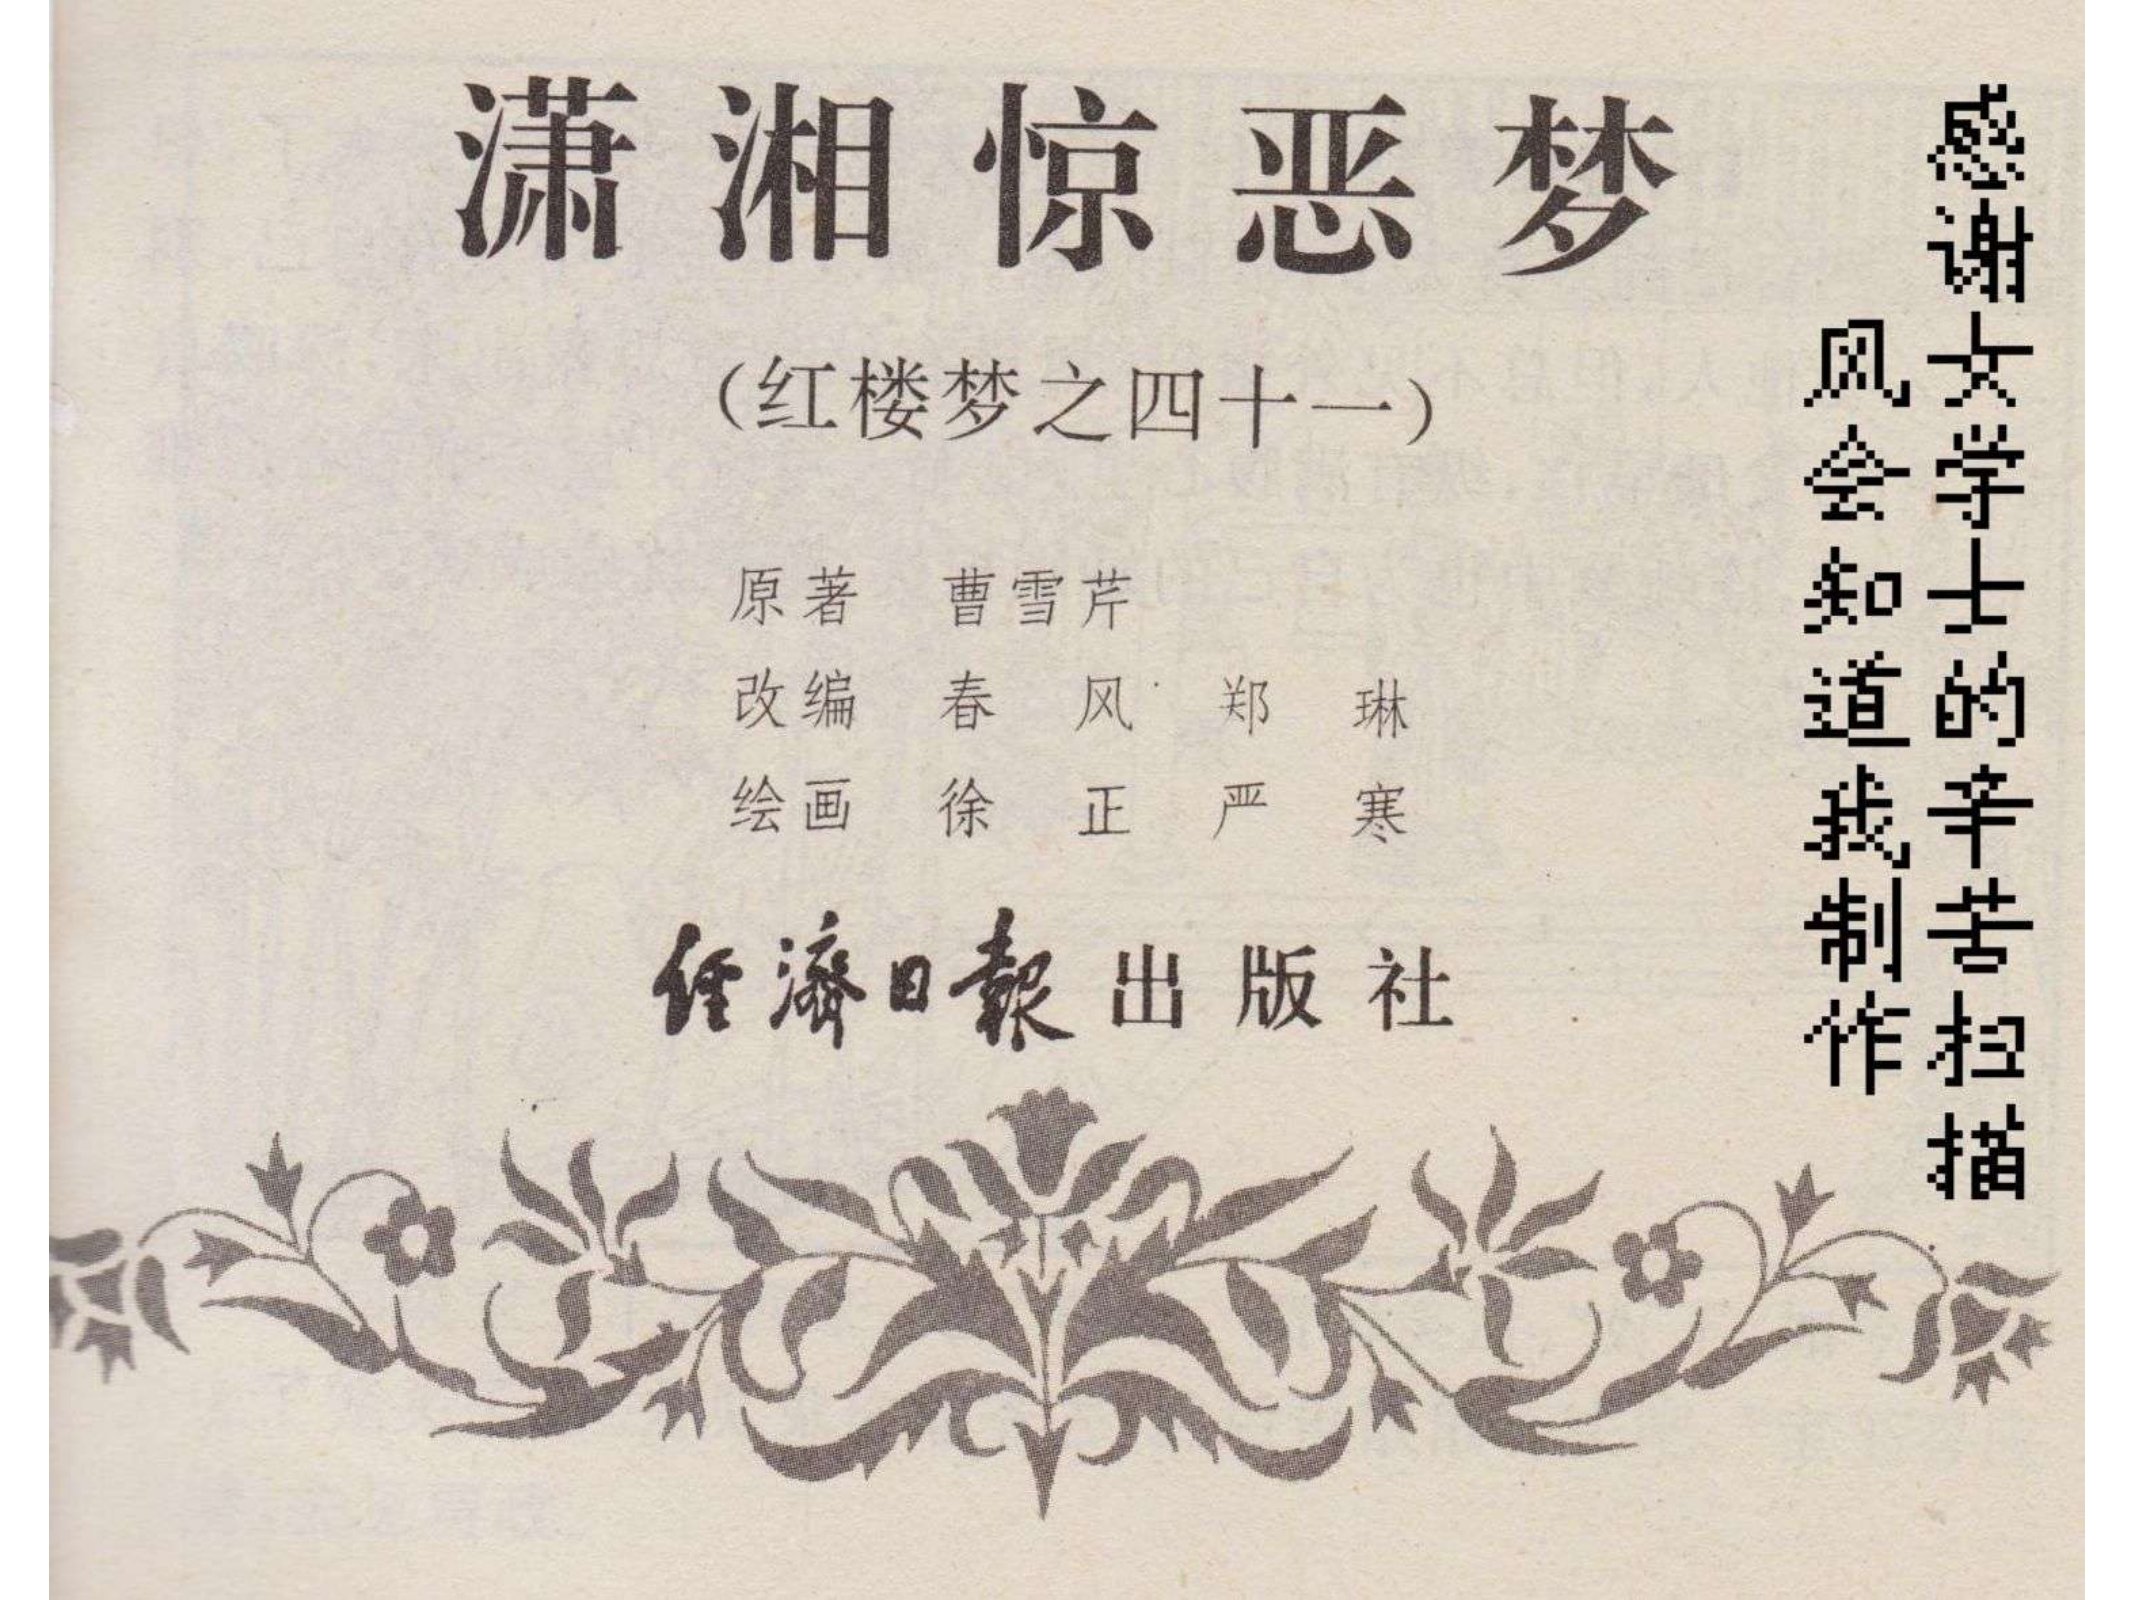 潇湘惊恶梦
（红楼梦之四十一）
原著 曹雪芹
改编 春风 郑琳
绘画 徐正 严寒
经濟日報出版社
感谢女学士的辛苦扫描
风会知道我制作